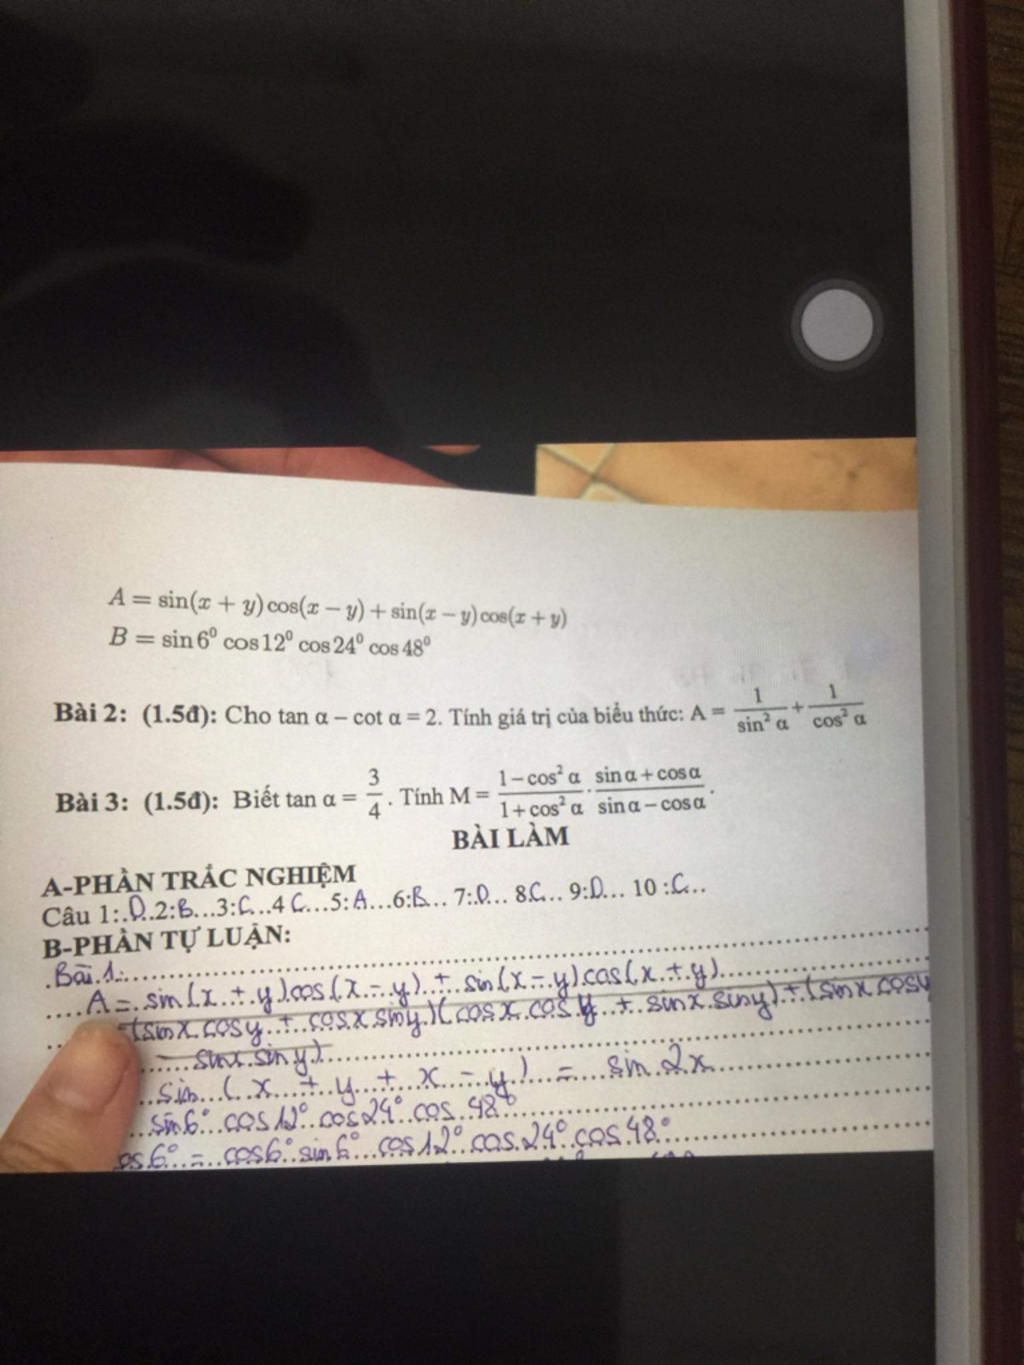 A = sin(x + y) cos(x − y) + sin(x − y) cos(x + y)
B = sin 6⁰ cos 12⁰ cos 24⁰ cos 48⁰
Bài 2: (1.5đ): Cho tan α – cot α = 2. Tính giá trị của biểu thức: A = 1/sin² α + 1/cos² α
Bài 3: (1.5đ): Biết tan α = 3/4. Tính M = (1 − cos² α)/(1 + cos² α) · (sin α + cos α)/(sin α − cos α).
BÀI LÀM
A-PHẦN TRẮC NGHIỆM
Câu 1:.D..2:B...3:C...4 C...5:A...6:B... 7:.D... 8C... 9:D... 10 :C...
B-PHẦN TỰ LUẬN:
Bài 1:
A = sin(x + y) cos(x − y) + sin(x − y) cos(x + y)
(sinx cosy + cosx siny)(cosx cosy + sinx siny) + (sinx cosy
− sinx siny)
sin (x + y + x − y) = sin 2x
sin6° cos12° cos24° cos 48°
os6° = cos6° sin6° cos12° cos24° cos48°